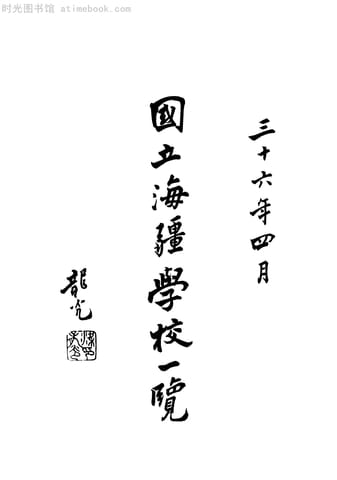 时光图书馆 atimebook.com
三十六年四月
國立海疆學校一覽
龍光